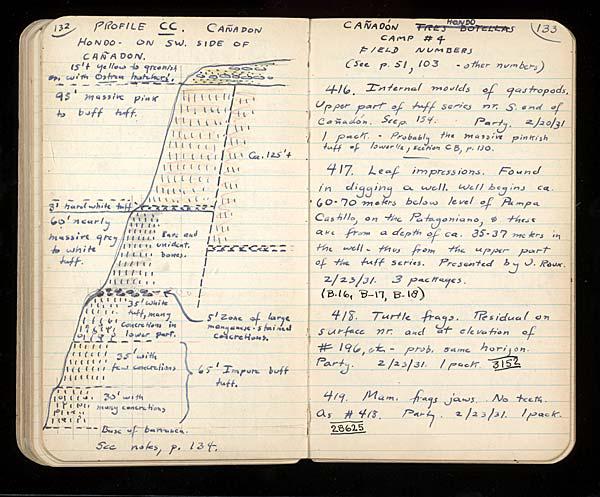 132 PROFILE CC. CAÑADON
HONDO- ON SW. SIDE OF
CAÑADON.
15'± yellow to greenish
on with Ostrea hatcheri.
95' massive pink
to buff tuff.
Ca. 125'±
3' hard white tuff
60' nearly
massive grey
to white
tuff.
Rare and
unident.
bones.
35' white
tuff, many
concretions in
lower part.
5' Zone of large
manganese-stained
concretions.
35' with
few concretions
65' Impure buff
tuff.
30' with
many concretions
Base of barranca.
See notes, p. 134.
133
HONDO
CAÑADÓN TRES BOTELLAS
CAMP #4
FIELD NUMBERS
(See p. 51, 103 - other numbers)
416. Internal molds of gastropods.
Upper part of tuff series nr. S. end of
Cañadón. See p. 154. Party. 2/20/31
1 pack. - Probably the massive pinkish
tuff of lower section CB, p. 130.
417. Leaf impressions. Found
in digging a well. Well begins ca.
60-70 meters below level of Pampa
Castillo, on the Patagoniano, & these
are from a depth of ca. 35-37 meters in
the well - thus from the upper part
of the tuff series. Presented by J. Roux.
2/23/31. 3 packages.
(B-16, B-17, B-18)
418. Turtle frags. Residual on
surface nr. and at elevation of
#196, etc - prob. same horizon.
Party. 2/23/31. 1 pack. 3152
419. Mam. frags jaws. No teeth.
As #418. Party. 2/23/31. 1 pack.
28625